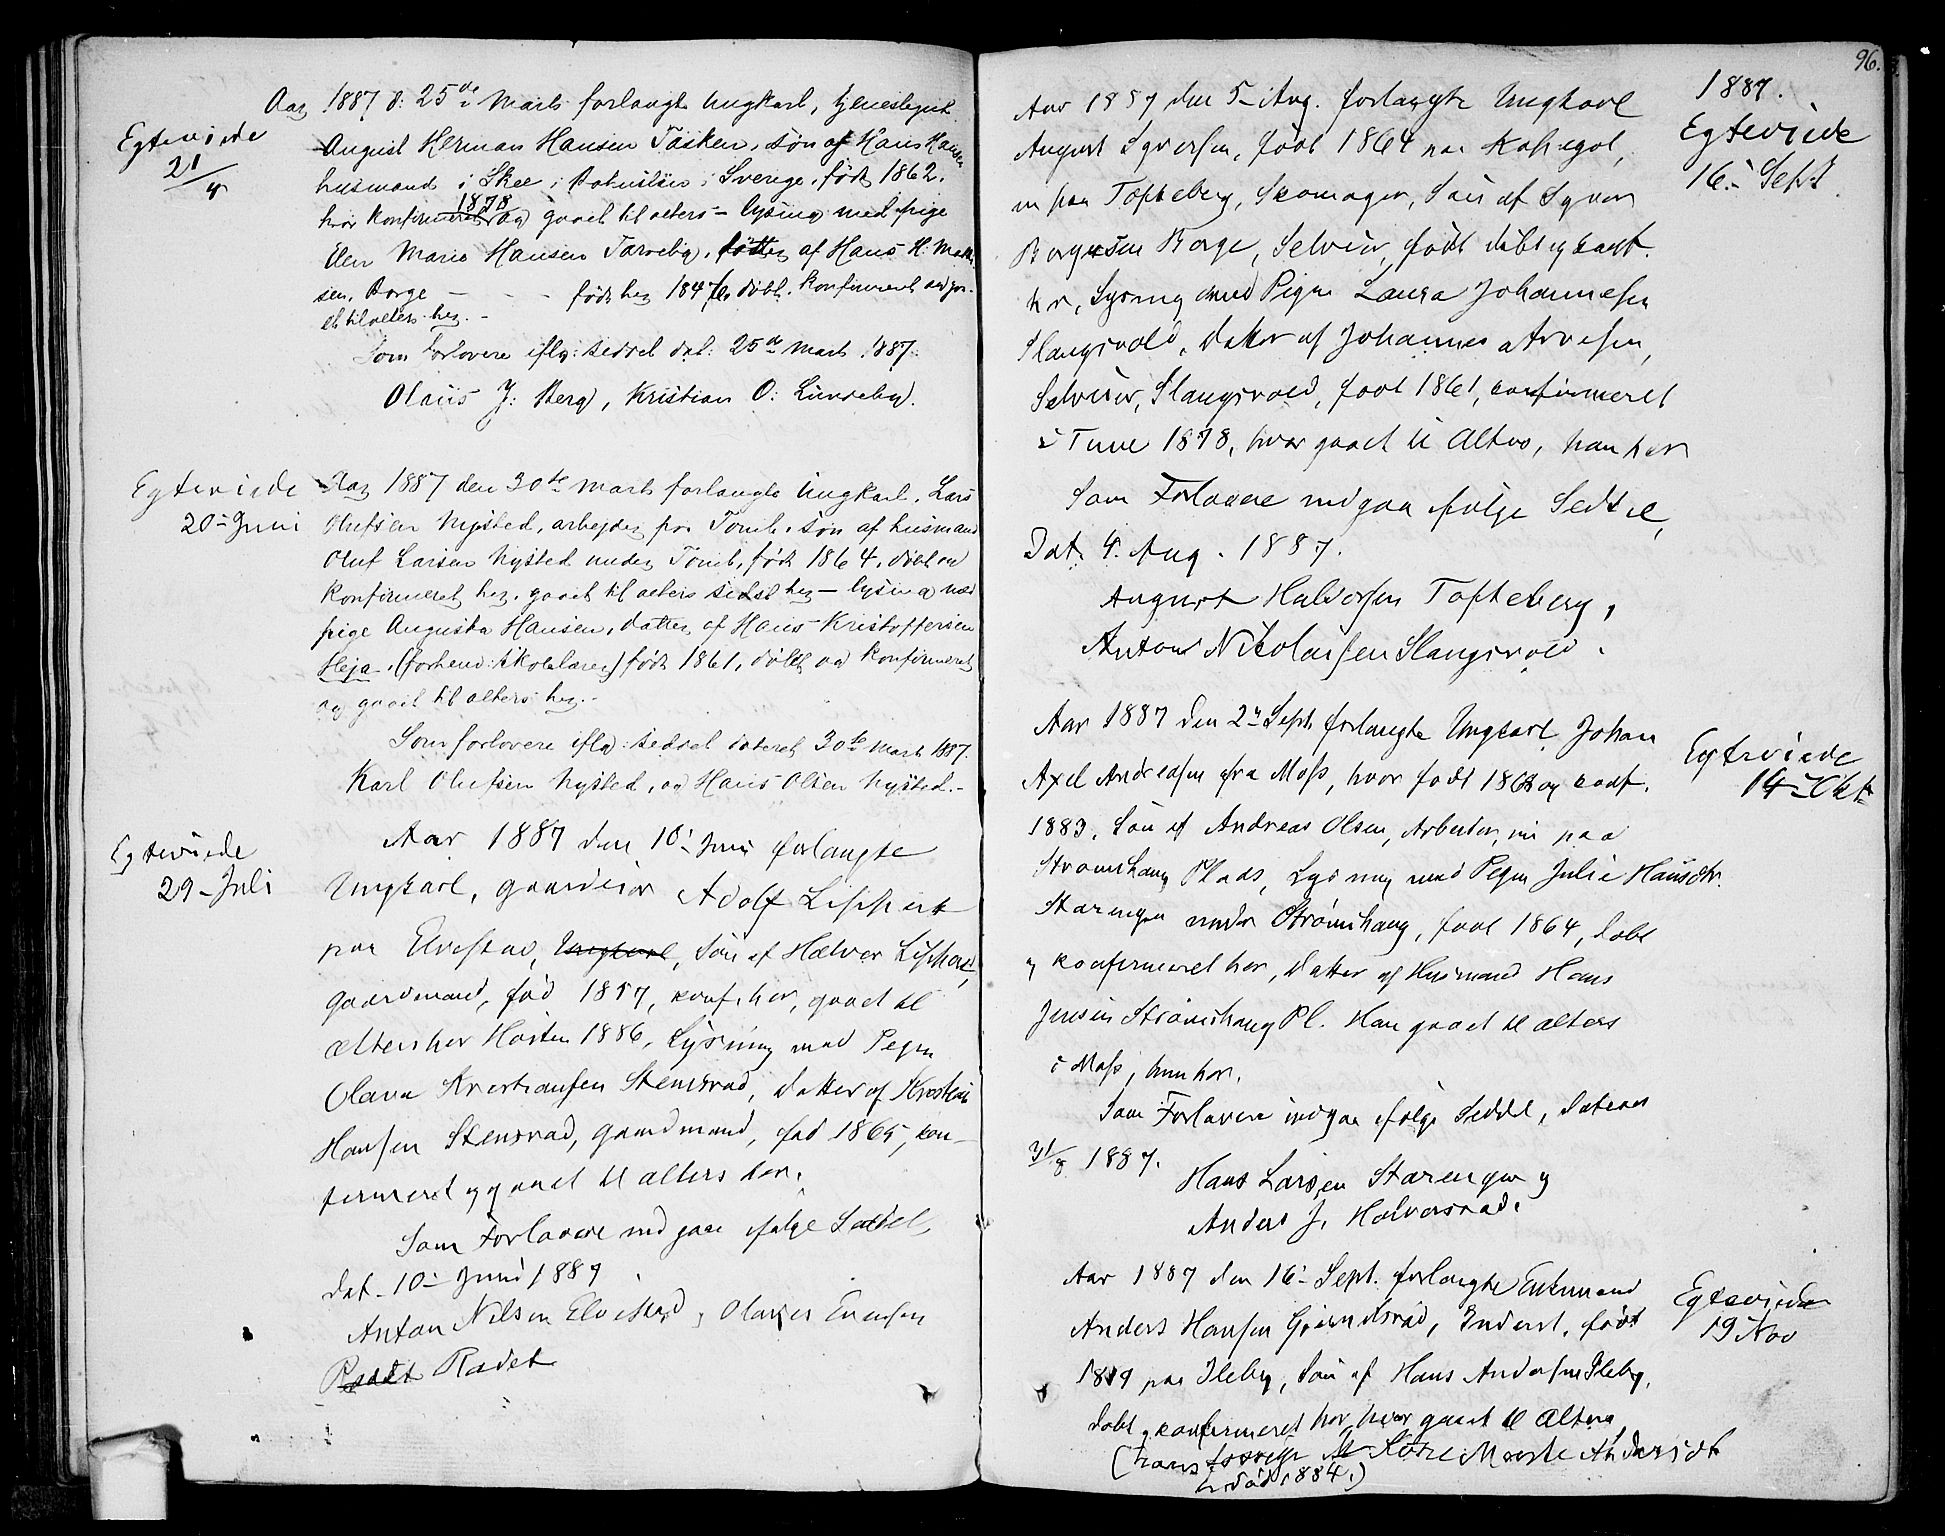 Aar 1887 d: 25de Marts forlangte Ungkarl, tjenestegut
Egteviede
21/4
August Herman Hansen Tasken, søn af Hans Hansen
husmand i Skee i Bohuslen i Sverige, født 1862,
hvor konfirmeret 1878 og gaaet til alters – lysing med pige
Elen Marie Hansen Tarveby, datter af Hans H. Mathi-
sen, Borge – – – født her 1847, døbt, konfirmeret og gaa-
et til alters her. –
Som forlovere iflg: seddel dat: 25de Marts 1887.
Olaüs J: Berg, Kristian O: Lundeby.
Egteviede
20de Juni
Aar 1887 den 30te Marts forlangte Ungkarl, Lars
Olufsen Nysted, arbejder paa Tomb, søn af husmand
Oluf Larsen Nysted under Tomb, født 1864, døbt og
konfirmeret her, gaaet til alters sidst her – lysing med
pige Augusta Hansen, datter af Hans Kristoffersen
Heja, (forhenv: skolelærer) født 1861, døbt og konfirmeret
og gaaet til alters her. –
Som forlovere iflg: seddel dateret 30te Marts 1887.
Karl Olufsen Nysted, og Hans Olsen Nysted. –
Egteviede
29– Juli
Aar 1887 den 10– Juni forlangte
Ungkarl, gaardeier Adolf Lippert
paa Elvestad, Ungkarl, Søn af Halvor Lippert,
Gaardmand, fød 1857, konf. her, gaaet til
alters her Høsten 1886, Lysning med Pigen
Olava Kristiansen Stensrød, Datter af Kristian
Hansen Stensrød, Gaardmand, fød 1865, kon-
firmeret og gaaet til alters her.
Som Forlovere indgaar ifølge Seddel,
dat. 10– Juni 1887
Anton Nilsen Elvestad, Olaves Evensen
Rødet Rødet
96.
1887.
Aar 1887 den 5– Aug. forlangte Ungkarl
Egteviede
16– Sept
August Syversen, født 1864 paa
nu paa Tofteberg, Skomager, Søn af Syver
Borge, Selveier, født døbt og konf.
her, Lysning med Pigen Laura Johannesen
Slangsvold, Datter af Johannes Arvesen,
Selveier, Slangsvold, født 1861, confirmeret
i Tune 1878, hvor gaaet til Alters, han her
Som Forlovere indgaa ifølge Seddel,
Dat. 4. Aug. 1887.
August Halvorsen Tofteberg,
Anton Nikolaisen Slangsvold.
Aar 1887 den 2– Sept. forlangte Ungkarl Johan
Egteviede
14– Okt
Axel Andreasen fra Moss, hvor født 1868 og conf.
1883, Søn af Andreas Olsen, Arbeider, nu paa
Strømshaug Plads, Lysning med Pigen Julie Hansdtr.
Starengen under Strømshaug, født 1864, døbt
og konfirmeret her, Datter af Husmand Hans
Jensen Strømshaug Pl. Han gaaet til alters
i Moss, hun her.
Som Forlovere indgaa ifølge Seddel, dateret
31/8 1887.
Hans Larsen Starengen og
Anders J. Halvorsrød.
Aar 1887 den 16– Sept. forlangte Enkemand
Egteviede
19 Nov
Anders Hansen Grimdsrød, Inderst, født
1819 paa Ileby, Søn af Hans Andersen Ileby,
døbt og konfirmeret her, hvor gaaet til Alters,
(hans forrige Marte Andersdt
død 1884.)